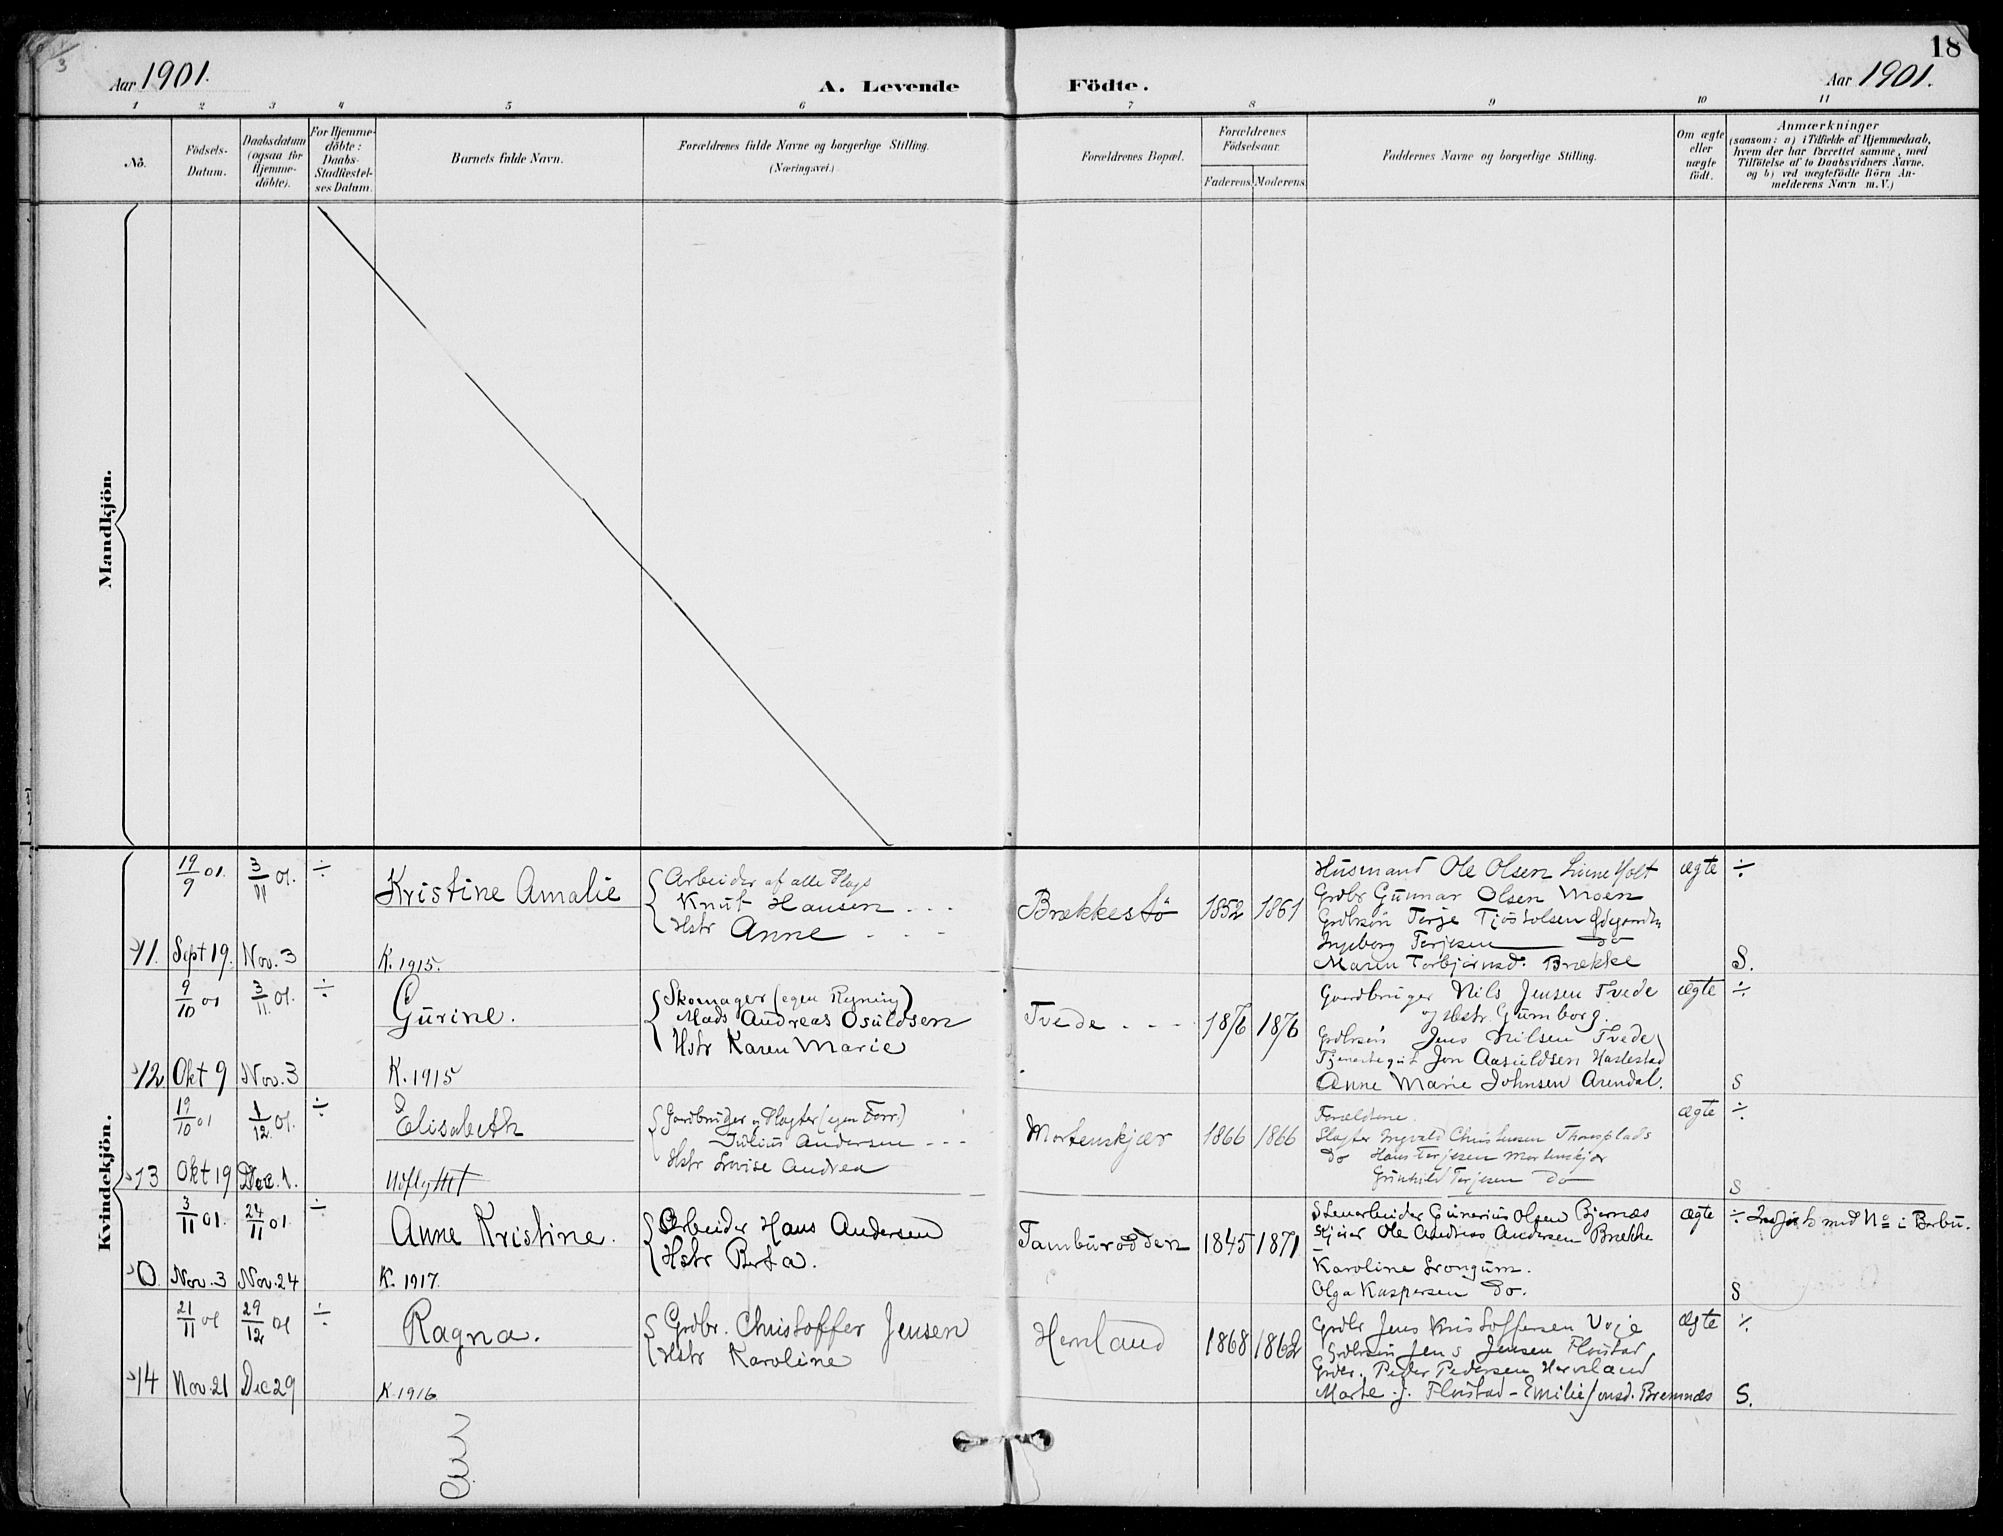 18
Aar 1901.
A. Levende Födte.
Aar 1901.
1 2 3 4 5 6 7 8 9 10 11
No.
Födsels-Datum.
Daabsdatum (ogsaa for Hjemme-döbte).
For Hjemme-döbte: Daabs-Stadfæstel-ses Datum.
Barnets fulde Navn.
Forældrenes fulde Navne og borgerlige Stilling.
(Næringsvei.)
Forældrenes Bopæl.
Forældrenes Födselsaar.
Faderens. Moderens.
Faddernes Navne og borgerlige Stilling.
Om ægte eller uægte födt.
Anmærkninger
(saasom: a) i Tilfælde af Hjemmedaab,
hvem der har forrettet samme, med
Tilföielse af to Daabsvidners Navne.
og b) ved uægtefödte Börn An-
melderens Navn m. V.)
Mandkjön.
Kvindekjön.
19/9 01. 3/11 01. ÷
Kristine Amalie
Arbeider af alle Slags
Knut Hansen
Hstr Anne
Brækkestö 1852 1861
Husmand Ole Olsen
Grdbr Gunnar Olsen Moen
Grdbrsøn Terje
Ingeborg Terjesen do
Maren Torbjørnsd. Brække
ægte ÷
11. Sept 19. Nov. 3
K. 1915.
S.
9/10 01 3/11 01. ÷
Gurine.
Skomager (egen Regning)
Mads Andreas Osuldsen
Hstr Karen Marie
Tvede 1876 1876
Gaardbruger Nils Jensen Tvede
og Hstr. Gumborg.
Grdbrsøn Jens Nilsen Tvede
Tjenestegut Jon Aasuldsen
Anne Marie Johnsen Arendal.
ægte ÷
12 Okt 9 Nov. 3
K. 1915
S
19/10 01 1/12 01. ÷
Elisabeth
Gardbruger og Slagter (egen Forr.)
Julius Andersen
Hstr Lovise Andrea
Mortenskjær 1866 1866
Forældrene
Slagter Ingvald Christensen
Do Hans Terjesen Mortenskjær
Gunhild Terjesen do
ægte ÷
13 Okt 19 Dec. 1.
Udflyttet
S
3/11 01. 24/11 01. ÷
Anne Kristine.
Arbeider Hans Andersen
Hstr Berta.
Tamburodden 1845 1871
Stenarbeider Gunerius Olsen Bjernæs
Ole Andreas Andersen Brække
Karoline Srongum.
Olga Kaspersen Do.
ægte ÷ med No i Barbu.
0. Nov. 3 Nov. 24
K. 1917.
S
21/11 01 29/12 01 ÷
Ragna.
Grdbr. Christoffer Jensen
Hstr Karoline
Hernland 1868 1862
Grdbr Jens Kristoffersen Voje
Grdbrsøn Jens Jensen Flovstad
Grdbr. Peder Pedersen Herreland
Marte J. Flovstad - Emilie Jonsd. Bremnæs
ægte ÷
14 Nov. 21 Dec 29
K. 1916
S.